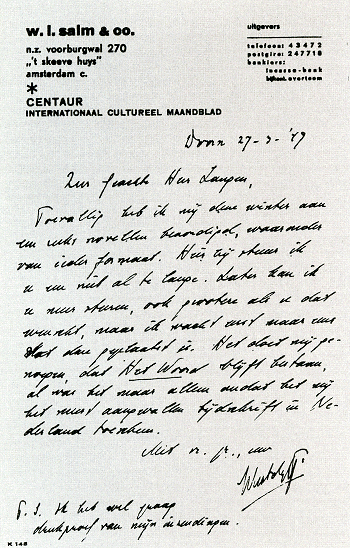 w. l. salm & co.
n.z. voorburgwal 270
„'t skeeve huys”
amsterdam c.
*
CENTAUR
INTERNATIONAAL CULTUREEL MAANDBLAD
uitgevers
telefoon: 43472
postgiro: 247718
bankiers:
incasso-bank
bijkant. overtoom
Doorn 27-3-'49
Zeer geachte Heer Langen,
Toevallig heb ik mij deze winter aan
een reeks novellen bezondigd, waaronder
van ieder formaat. Hierbij stuur ik
u een niet al te lange. Later kan ik
u meer sturen, ook grootere als u dat
wenscht, maar ik wacht eerst maar eens
dat deze geplaatst is. Het doet mij ge-
noegen, dat Het Woord blijft bestaan,
al was het maar alleen omdat het mij
het meest aangevallen tijdschrift in Ne-
derland toescheen.
Met vr. gr., uw
P.S. Ik heb wel graag
drukproef van mijn inzendingen.
K 148